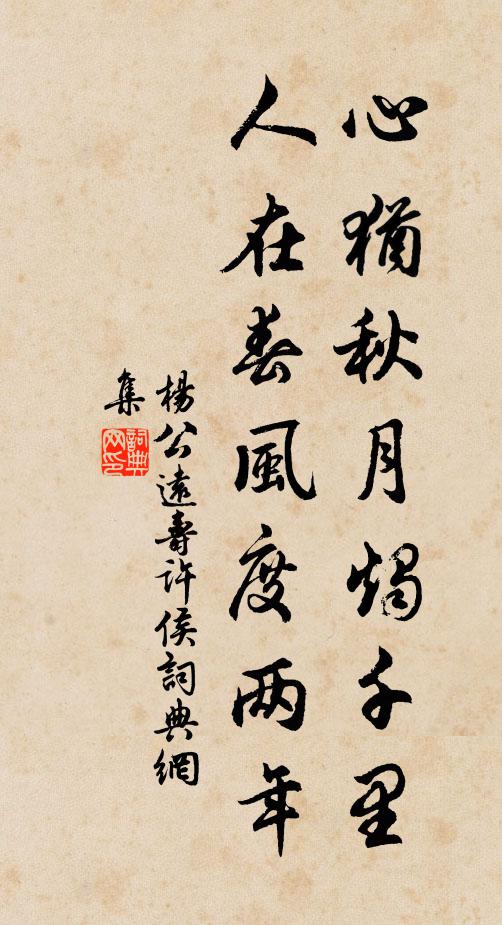 心猶秋月燭千里
人在春風度两年
楊公遠壽許侯詞典網
集
詞典網印